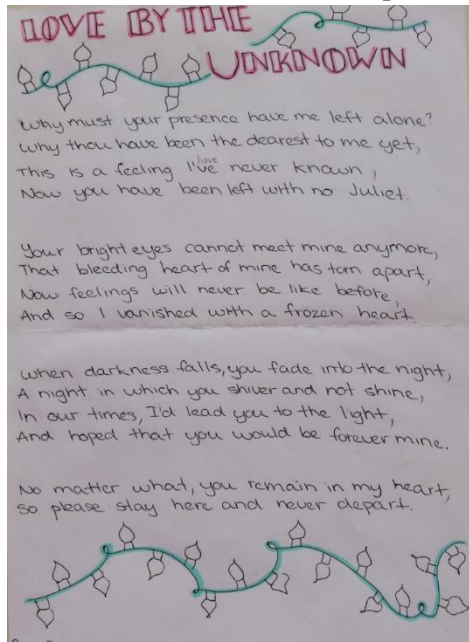 LOVE BY THE
UNKNOWN
Why must your presence have me left alone?
Why thou have been the dearest to me yet,
This is a feeling I've have never known,
Now you have been left with no Juliet.
Your bright eyes cannot meet mine anymore,
That bleeding heart of mine has torn apart,
Now feelings will never be like before,
And so I vanished with a frozen heart.
When darkness falls, you fade into the night,
A night in which you shiver and not shine,
In our times, I'd lead you to the light,
And hoped that you would be forever mine.
No matter what, you remain in my heart,
So please stay here and never depart.